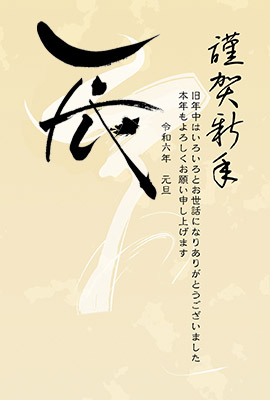 謹賀新年
旧年中はいろいろとお世話になりありがとうございました
本年もよろしくお願い申し上げます
令和六年　元旦
辰